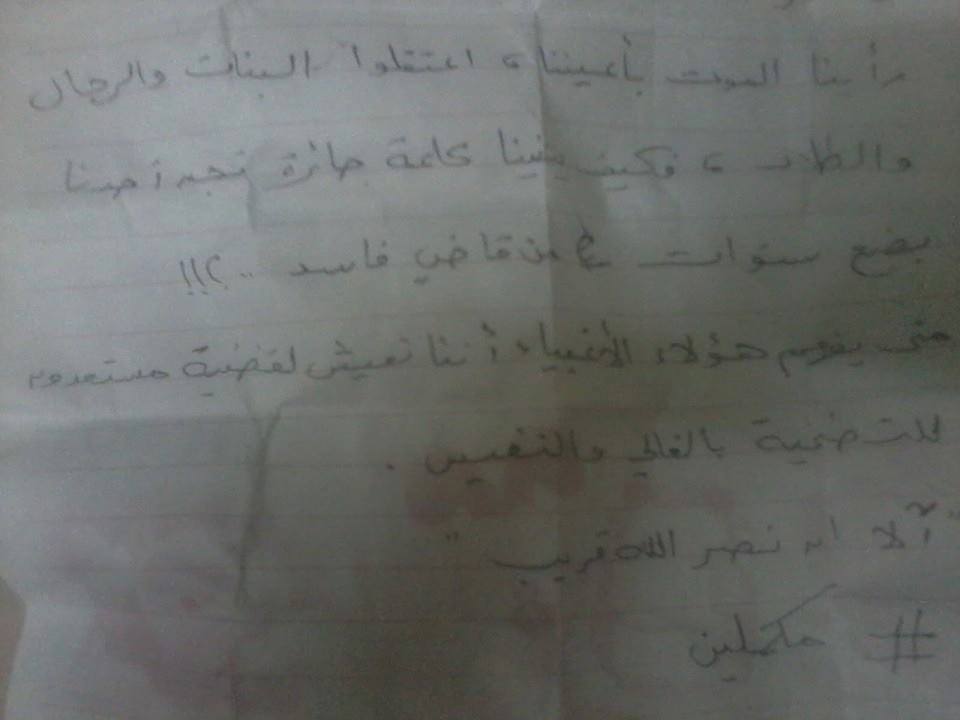 رأينا الموت بأعيننا ، اعتقلوا البنات والرجال
والطلاب ، فكيف يثنينا كلمة جائرة تجد أحدنا
بضع سنوات من قاضي فاسد .. ؟!!
متى يفهم هؤلاء الأغبياء أننا نعيش لقضية مستعدون
للتضحية بالغالي والنفيس .
"ألا ان نصر الله قريب "
# مكملين